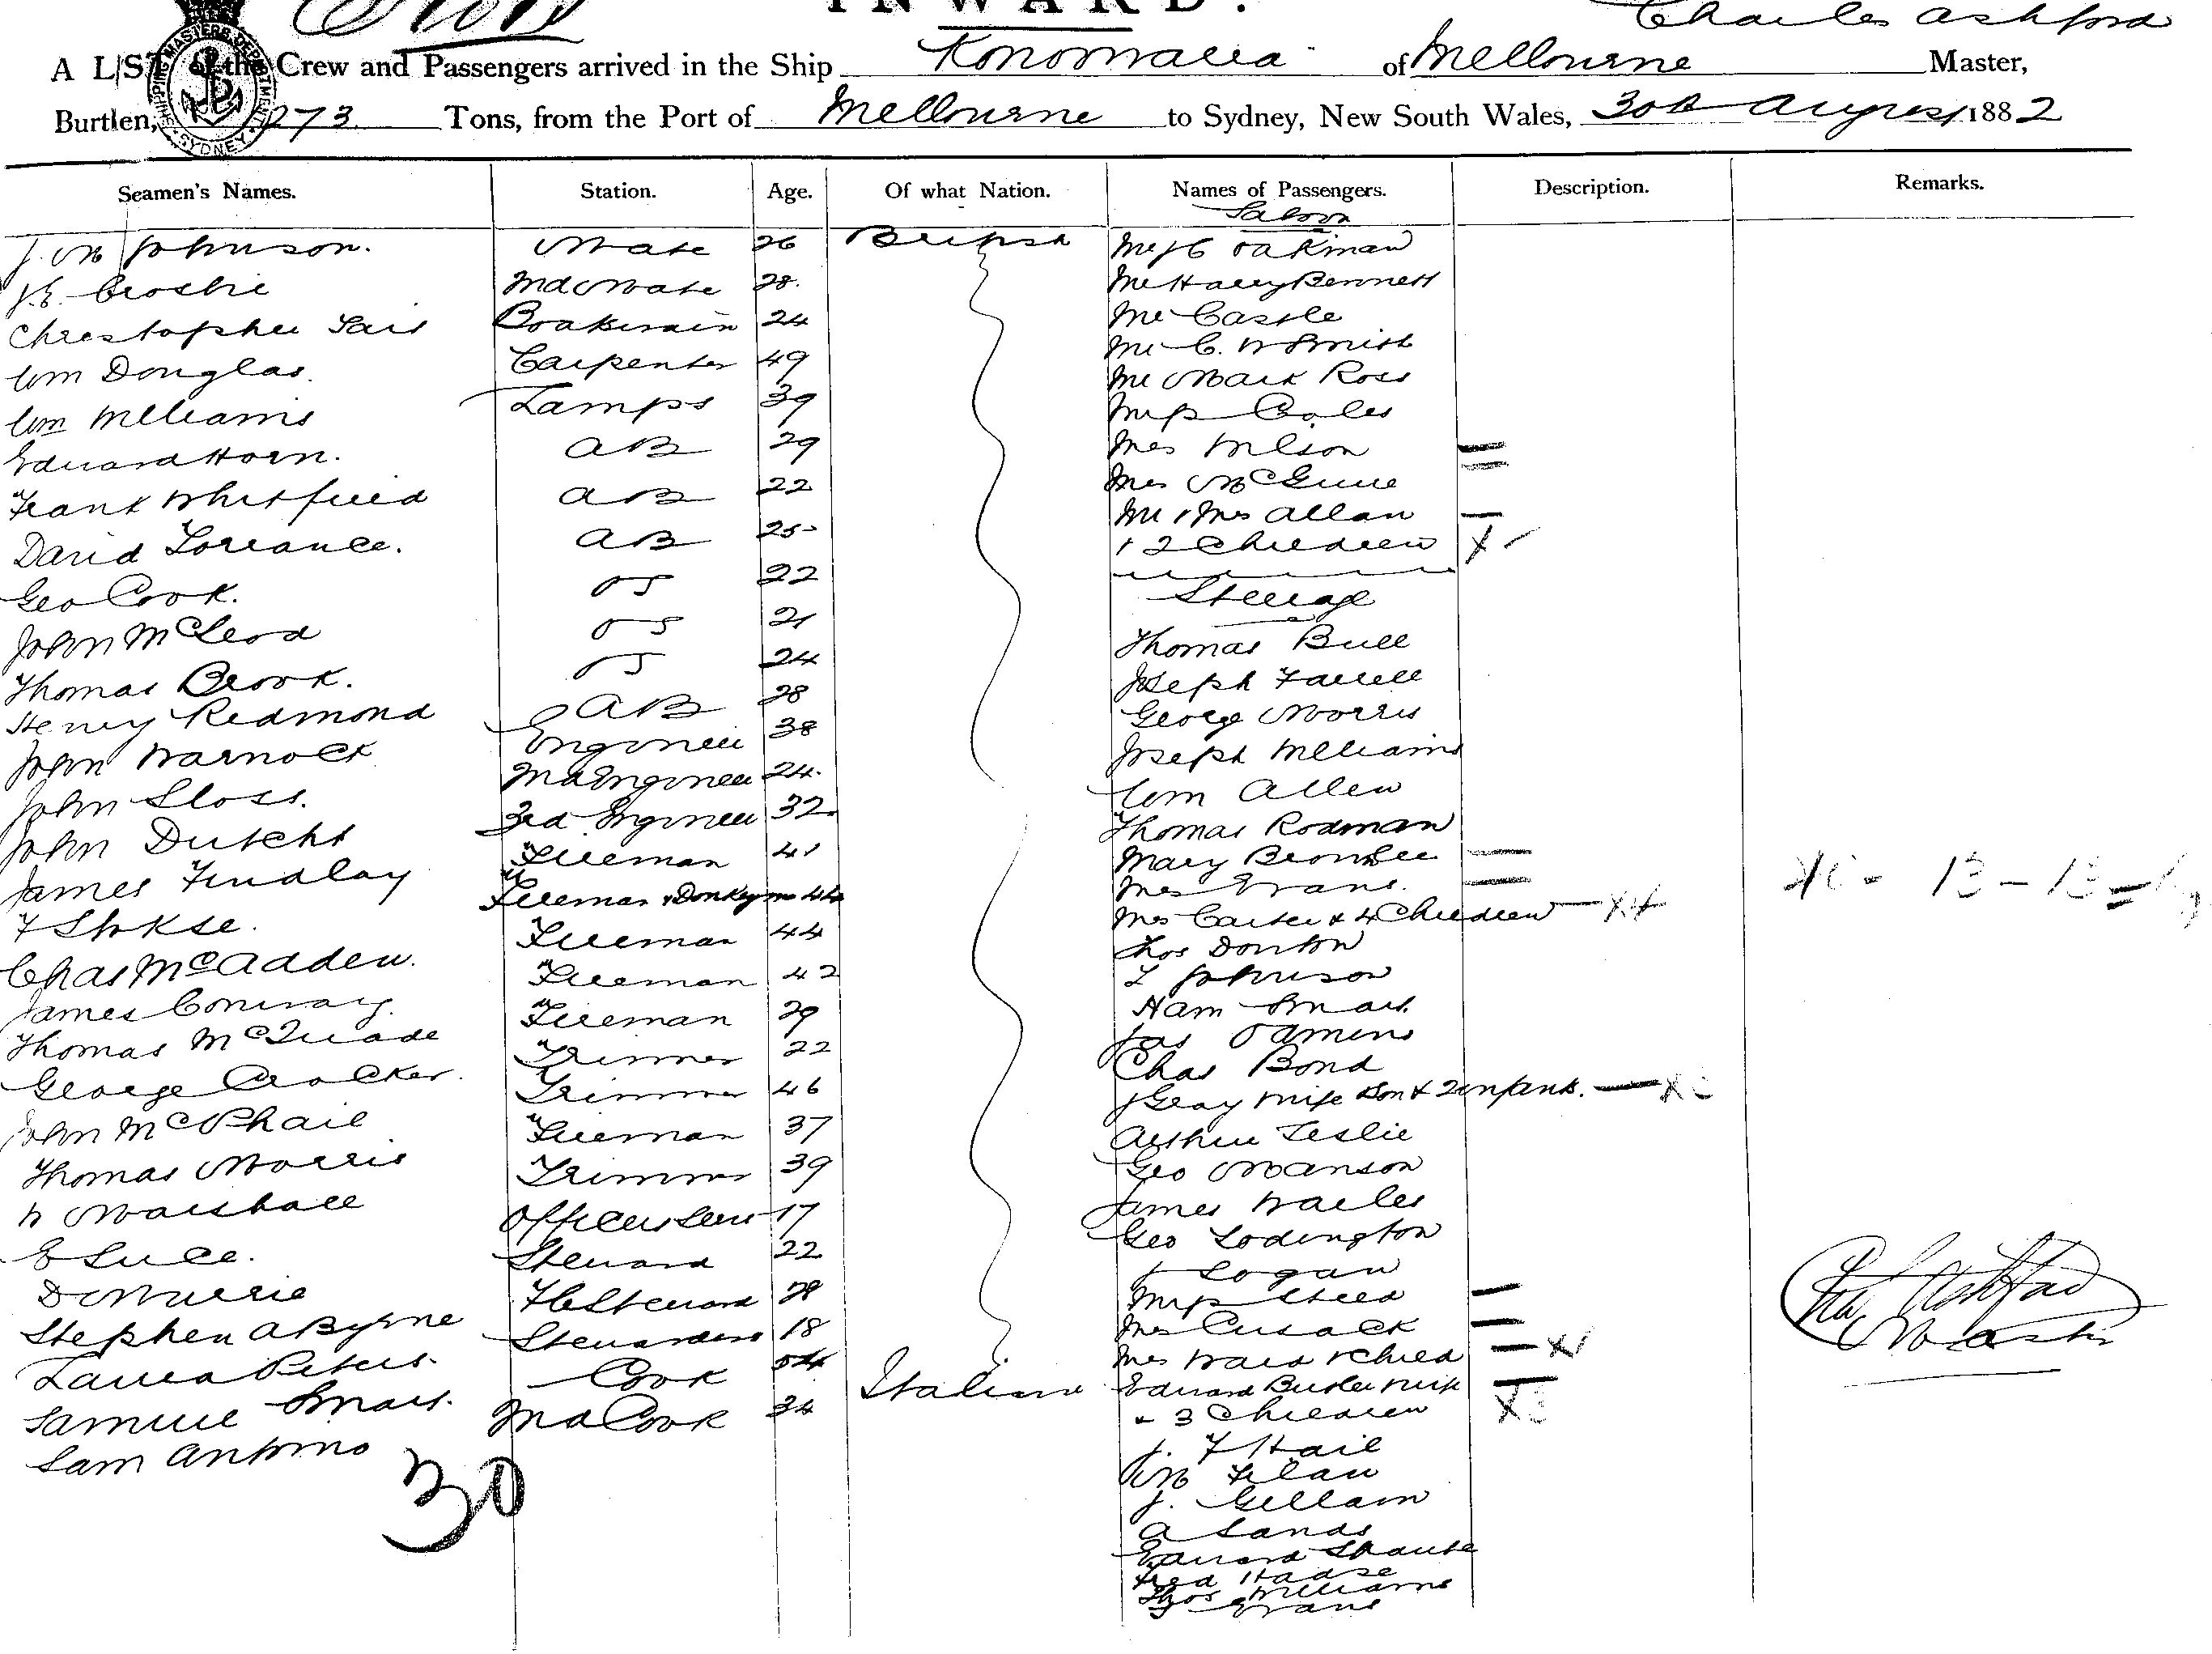 INWARD.
Charles Ashford
A LIST of the Crew and Passengers arrived in the Ship Konoowarra of Melbourne Master,
Burthen, 1273 Tons, from the Port of Melbourne to Sydney, New South Wales, 30th August 1882
SHIPPING MASTERS DEPARTMENT SYDNEY
Seamen's Names. Station. Age. Of what Nation. Names of Passengers. Description. Remarks.
Saloon
J. M Johnson. Mate 26 British Mr J C Oakman
J.E. Crosbie 2nd Mate 28. Mr Harry Bennett
Christopher Boatswain 24 Mr Castle
Wm Douglas. Carpenter 49 Mr C. W Smith
Wm Williams Lamps 39 Mr Mark Ross
Edward Horn. AB 29 Coles
Frank Whitfield AB 22 Mrs Wilson
David Lorrance. AB 25 Mrs McGuire
Geo Cook. OS 22 Mr & Mrs Allan
John McLeod OS 21 & 2 Children X
Thomas Brook. OS 24 Steerage
Henry Redmond AB 28 Thomas Bull
John Warnock Engineer 38 Joseph Farrell
John Sloss. 2nd Engineer 24. George Morris
John Dutcht 3rd Engineer 32 Joseph Williams
James Findlay Fireman 41 Wm Allen
F Fireman & Donkeyman 44 Thomas Rodman
Chas McAdden. Fireman 44 Mary Brownlee
James Conway. Fireman 42 Mrs Evans.
Thomas McQuade Fireman 29 Mrs Carter & 4 Children X4
George Crocker. Trimmer 22 Thos Donton
John McPhail Trimmer 46 L Johnson
Thomas Morris Fireman 37 Smart.
W Marshall Trimmer 39 Jas
E Luce. Officers Serv 17 Chas Bond
D McMurrie Steward 22 J Gray wife Son & 2 infants. X
Stephen A Byrne F C Steward 28 Arthur Leslie
Laura Peters. Stewardess 18 Geo Manson
Samuel Smart. Cook 54 James Wailes
Sam Antonio 2nd Cook 34 Italian Geo Lodington
30
J Logan
Steed
Mrs Cusack
Mrs Ward & Child X1
Edward Butler wife
& 3 Children X3
J. F Hail
J. Gillam
A Sands
Edward
Fred
Thos Williams
Evans
Chas Ashford
Master